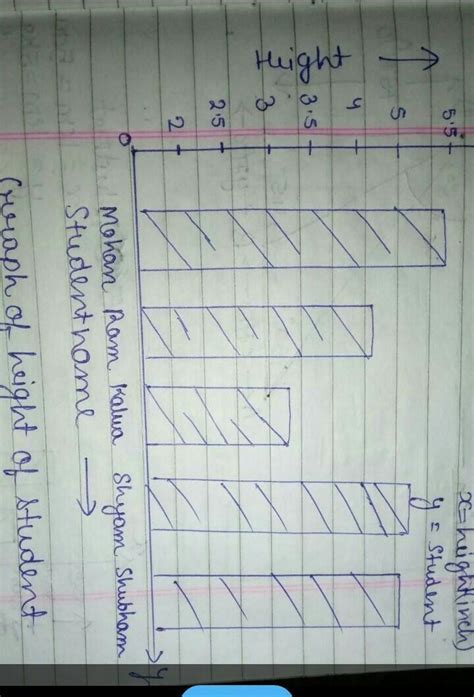 x=height(inch)
y = Student
Height
5.5
5
4
3.5
3
2.5
2
0
y
Mohan Ram Kalua Shyam Shubham
Student name
Graph of height of student